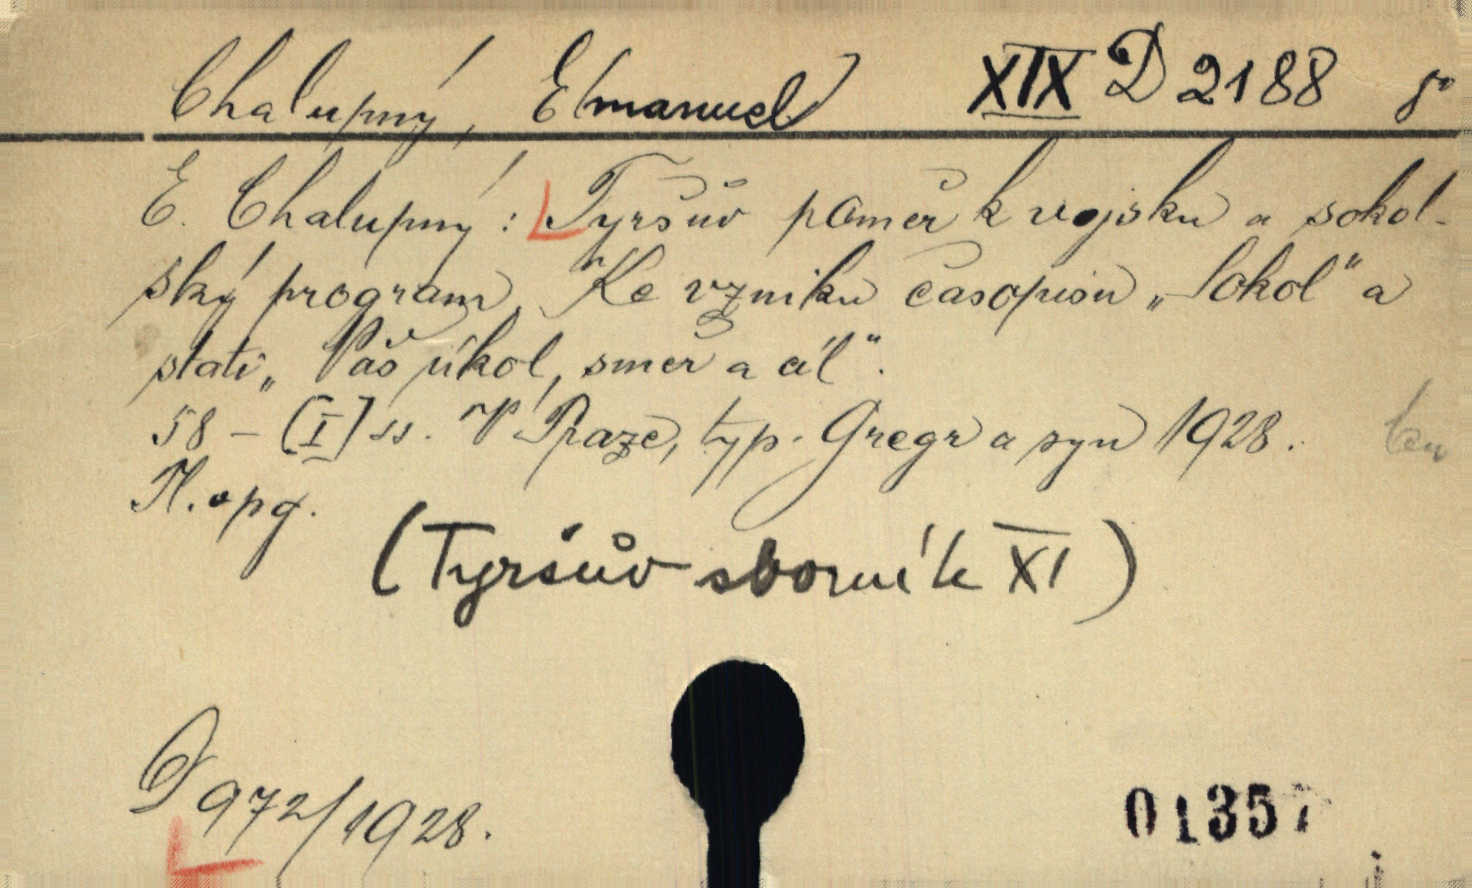 Chalupný, Emanuel XIX D 2188 8°
E. Chalupný: Tyršův poměr k vojsku a sokol-
ský program. Ke vzniku časopisu „Sokol" a
stati „Náš úkol, směr a cíl".
58 – [I] ss. V Praze, typ. Grégr a syn 1928.
(Tyršův sborník XI)
D 972/1928.
01357